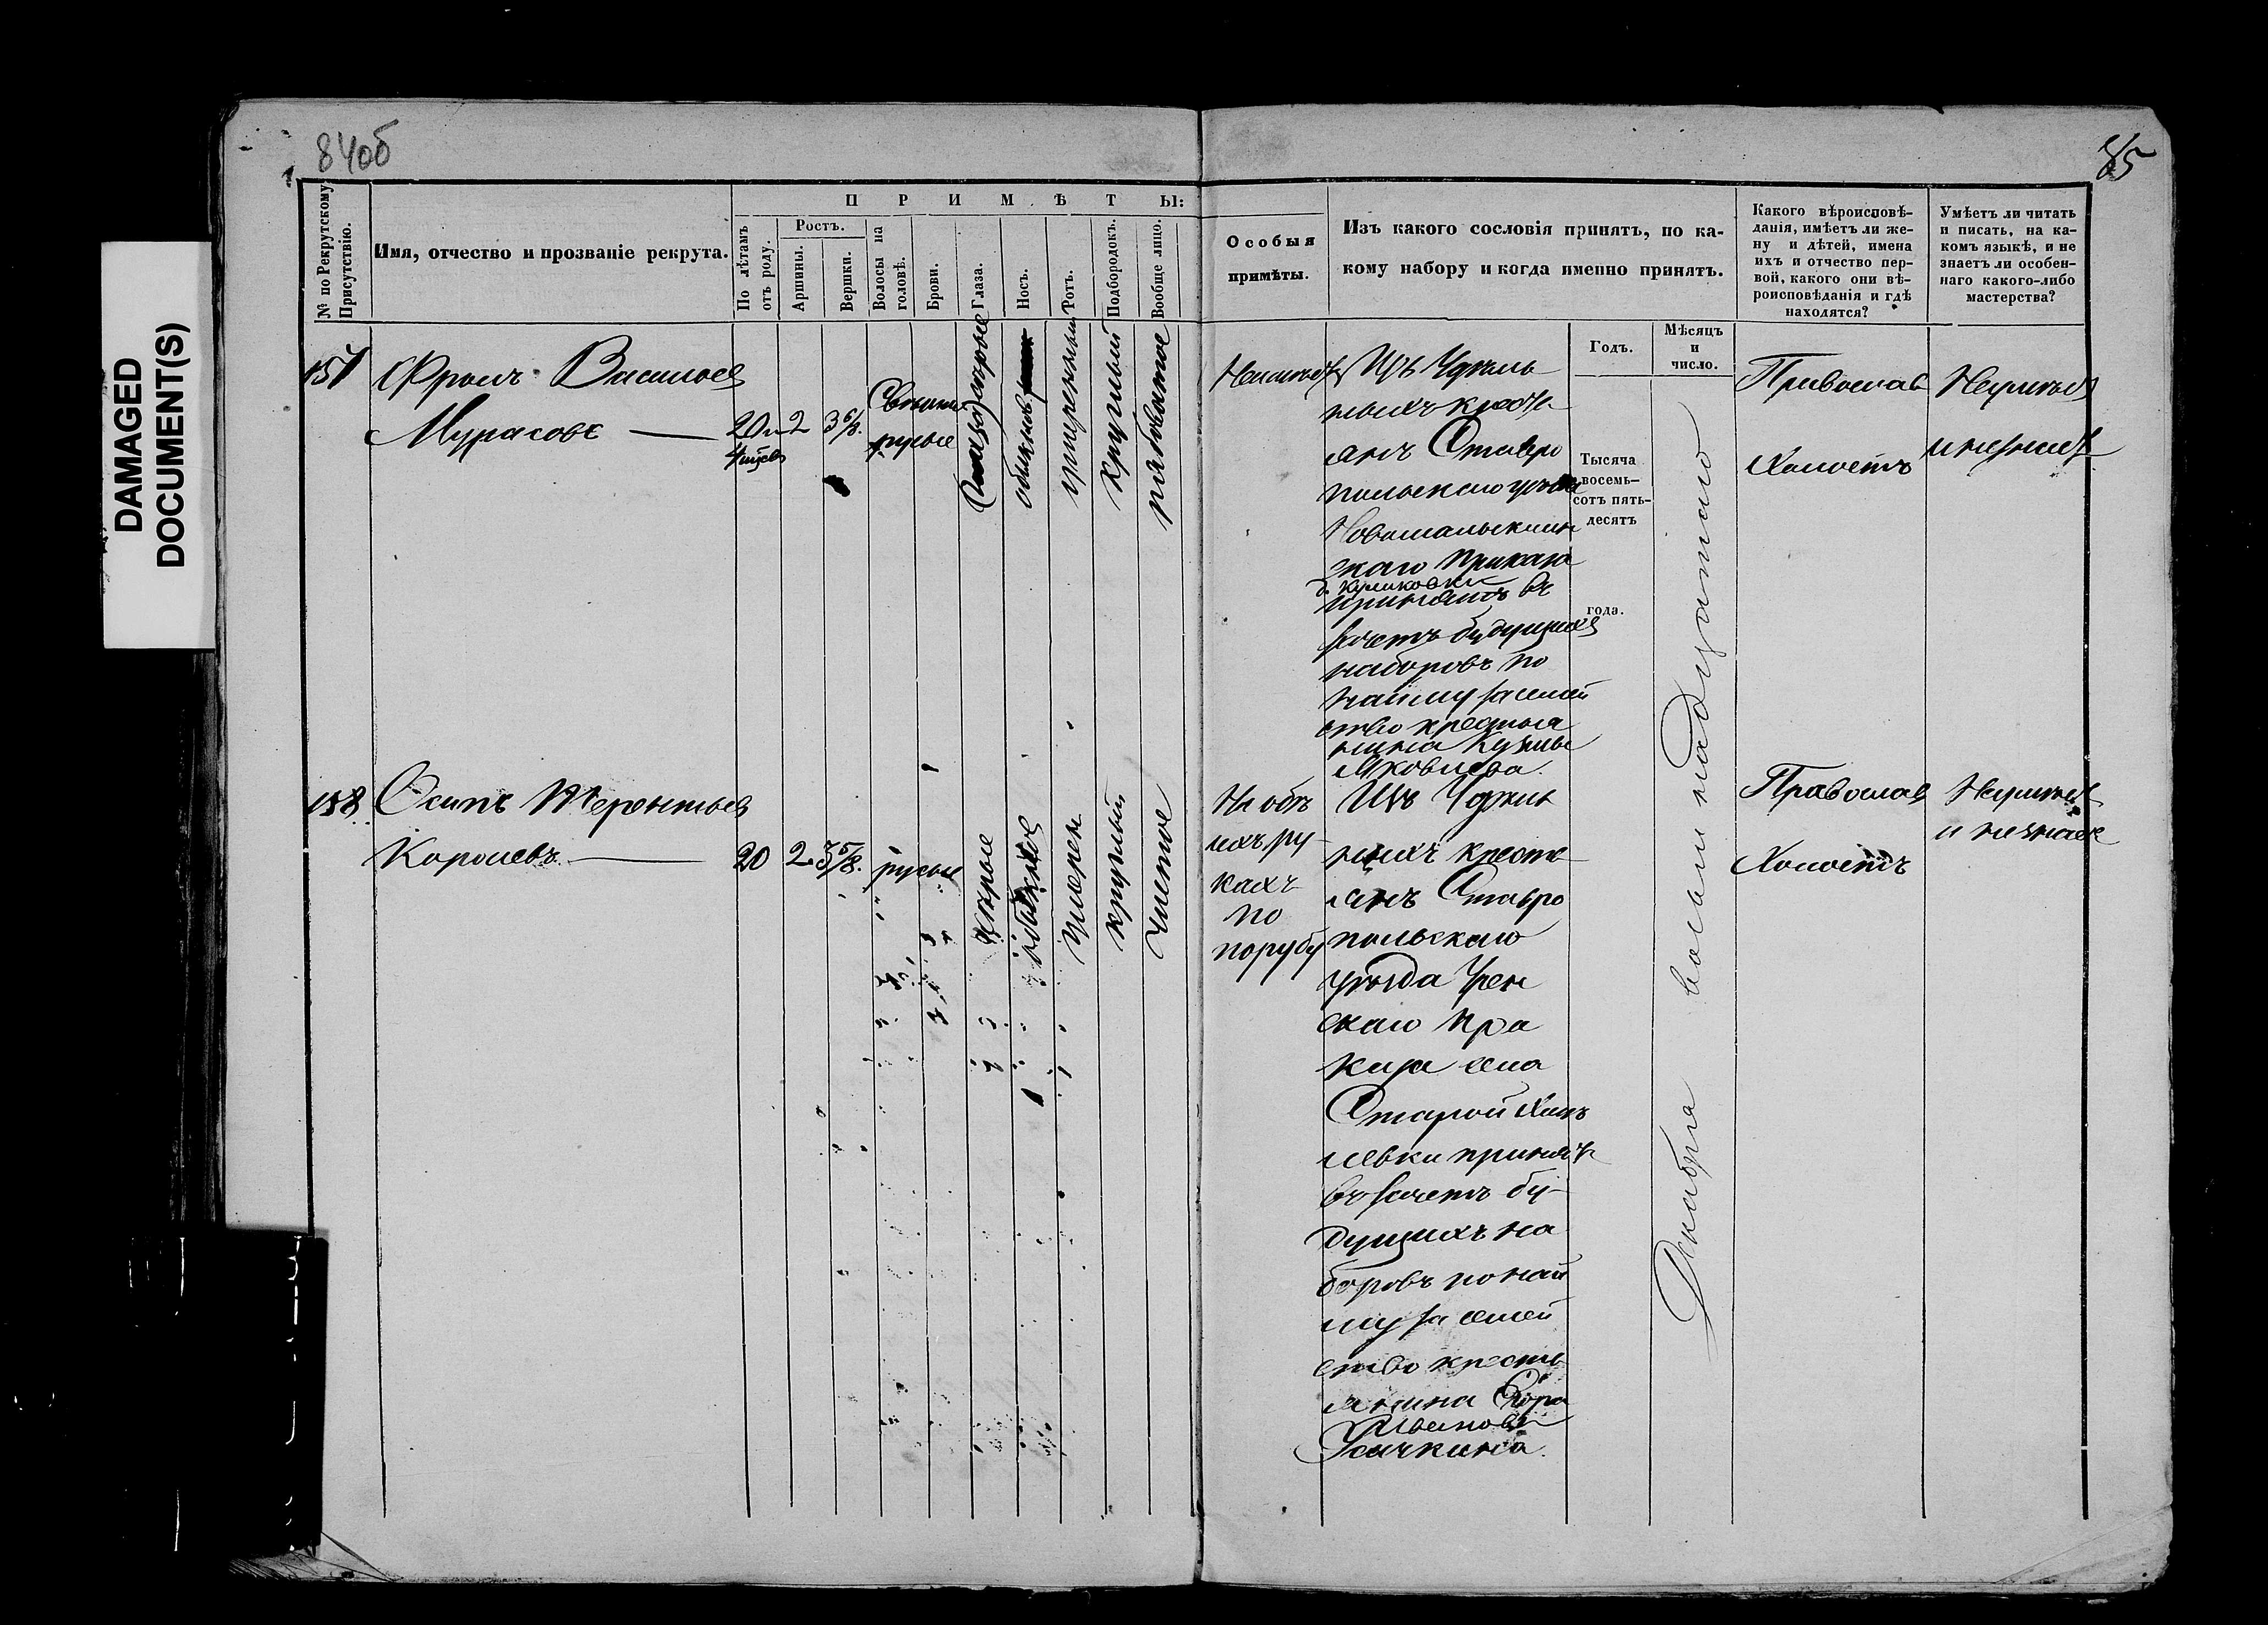 DAMAGED
DOCUMENT(S)
84об
85
№ по Рекрутскому
Присутствію.
Имя, отчество и прозваніе рекрута.
ПРИМѢТЫ:
По лѣтамъ
отъ роду.
Ростъ.
Аршины.
Вершки.
Волосы на
головѣ.
Брови.
Глаза.
Носъ.
Ротъ.
Подбородокъ.
Вообще лицо.
Особыя
примѣты.
Изъ какого сословія принятъ, по ка-
кому набору и когда именно принятъ.
Годъ.
Мѣсяцъ
и
число.
Какого вѣроисповѣ-
данія, имѣетъ ли же-
ну и дѣтей, имена
ихъ и отчество пер-
вой, какого они вѣ-
роисповѣданія и гдѣ
находятся?
Умѣетъ ли читать
и писать, на ка-
комъ языкѣ, и не
знаетъ ли особен-
наго какого-либо
мастерства?
157
Фролъ Васильев
Мурасовъ
20 и
2
3 6/8.
Светло
русые
серые
умеренный
круглый
рябоватое
Неимеет
Изъ Удель
ныхъ крест
янъ Ставро
польскаго уезда
скаго Приказа
д. Куликовки
принятъ въ
зачетъ будущихъ
наборовъ по
найму за семей
ство крестья
нина Кузмы
Яковлева.
Тысяча
восемь-
сотъ пять-
десятъ
года.
Декабря восемнадцатаго
Православ
Холостъ
Неумеет
и незнает
158
Осипъ Терентьев
Королевъ
20
2
3 5/8.
русые
серые
умерен
круглый
чистое
На объ
ихъ ру
кахъ
по
порубу
Изъ Удел
ныхъ кресть
янъ Ставро
польскаго
уезда Урен
скаго При
каза села
Старой Хме
левки принятъ
въ зачетъ бу-
дущихъ на
боровъ по най
му за семей
ство кресть
янина Егора
Иванова
Православ
Холостъ
Неумеет
и незнает